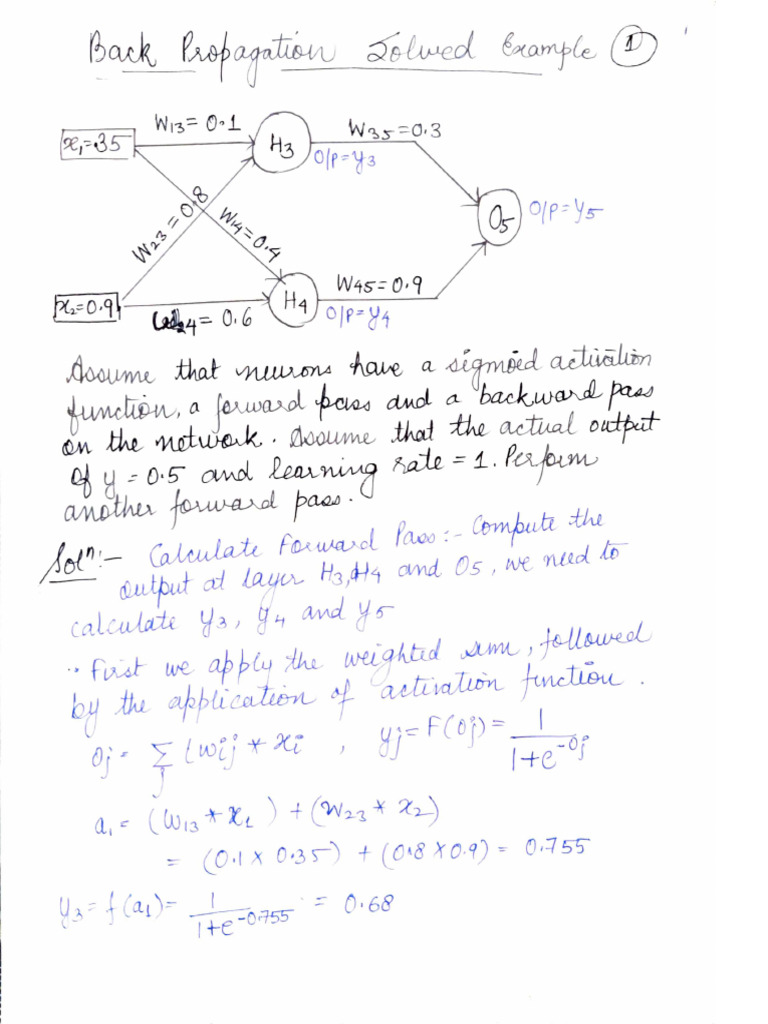 Back Propagation Solved Example 1
W13 = 0.1
W35 = 0.3
x1 = 35
H3
O/P = y3
W23 = 0.8
W14 = 0.4
O5
O/P = y5
x2 = 0.9
H4
W45 = 0.9
24 = 0.6
O/P = y4
Assume that neurons have a sigmoid activation
function, a forward pass and a backward pass
on the network. Assume that the actual output
of y = 0.5 and learning rate = 1. Perform
another forward pass.
Solⁿ:- Calculate Forward Pass:- Compute the
output at layer H3, H4 and O5, we need to
calculate y3, y4 and y5
First we apply the weighted sum, followed
by the application of activation function.
Oj = Σj (wij * xi , yj = F(Oj) = 1/1+e^-Oj
a1 = (W13 * x1) + (W23 * x2)
= (0.1 x 0.35) + (0.8 x 0.9) = 0.755
y3 = f(a1) = 1/1+e^-0.755 = 0.68